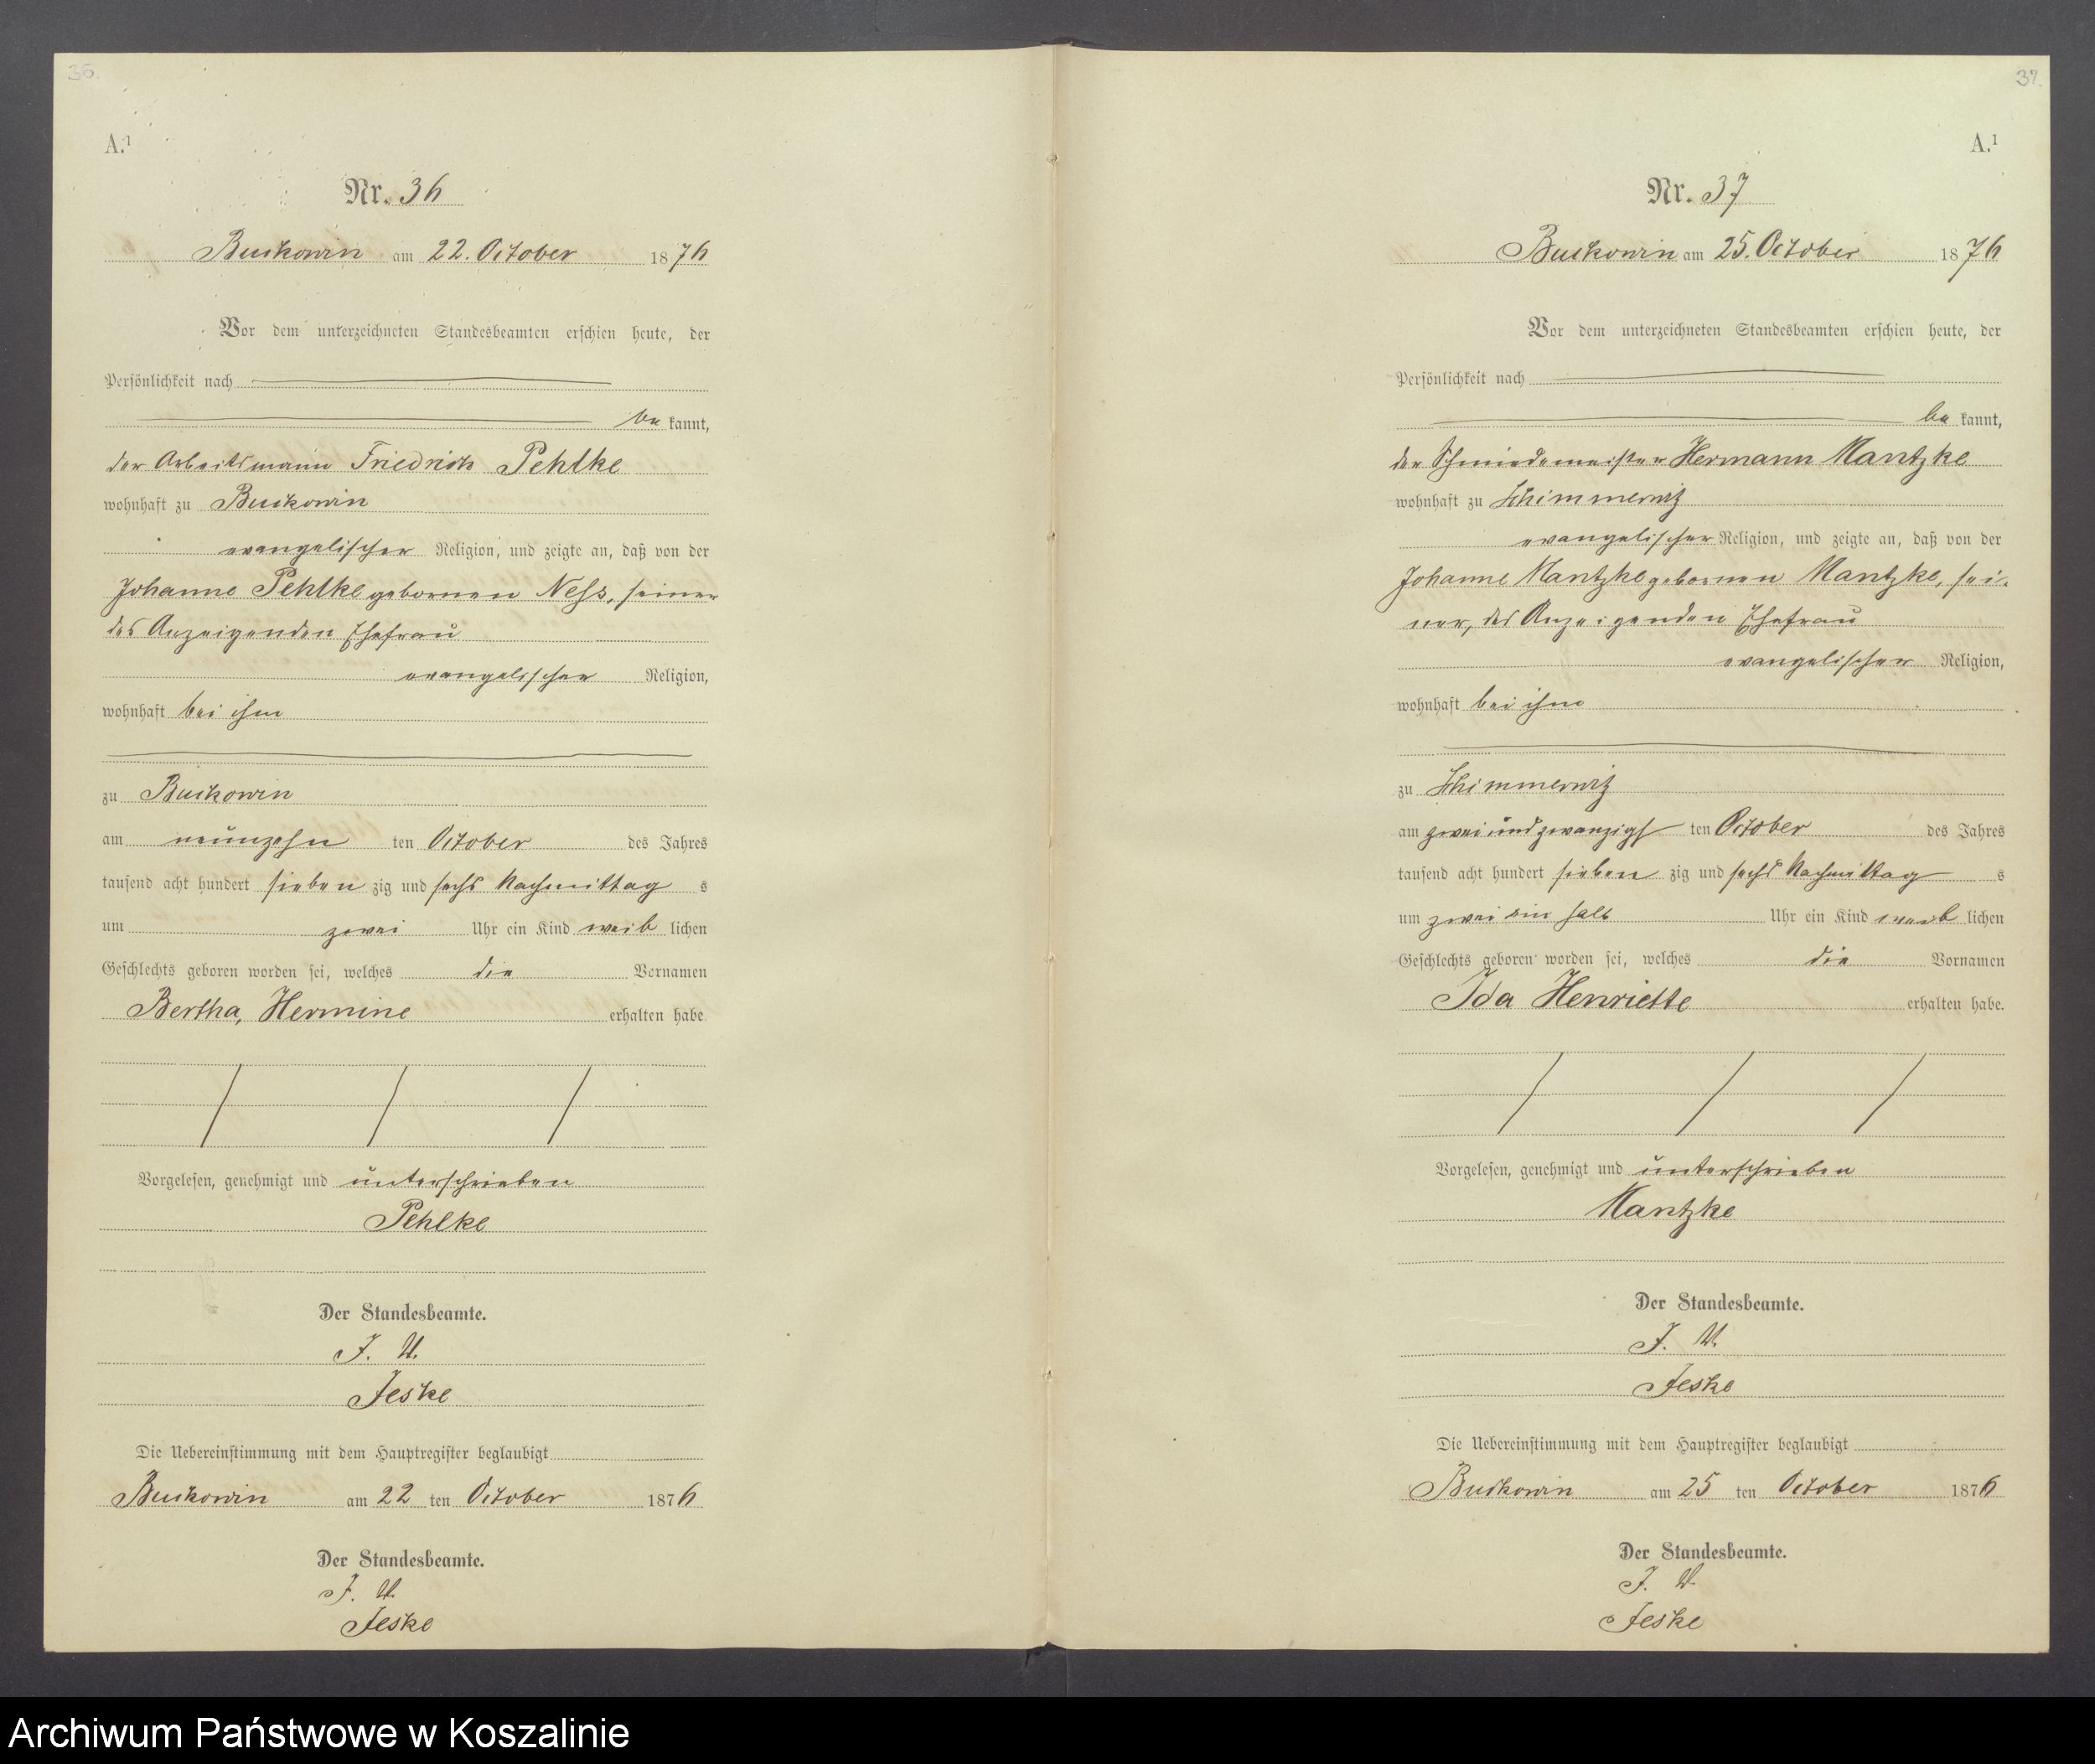 36.
A.¹
Nr. 36
Buckowin am 22. October 1876
Vor dem unterzeichneten Standesbeamten erschien heute, der
Persönlichkeit nach
be kannt,
der Arbeitsmann Friedrich Pehlke
wohnhaft zu Buckowin
evangelischer Religion, und zeigte an, daß von der
Johanne Pehlke gebornen Ness, seiner
des Anzeigenden Ehefrau
evangelischer Religion,
wohnhaft bei ihm
zu Buckowin
am neunzehn ten October des Jahres
tausend acht hundert sieben zig und sechs Nachmittag s
um zwei Uhr ein Kind weib lichen
Geschlechts geboren worden sei, welches die Vornamen
Bertha, Hermine erhalten habe
Vorgelesen, genehmigt und unterschrieben
Pehlke
Der Standesbeamte.
J. V.
Jeske
Die Uebereinstimmung mit dem Hauptregister beglaubigt
Buckowin am 22 ten October 1876
Der Standesbeamte.
J. V.
Jeske
37.
A.¹
Nr. 37
Buckowin am 25. October 1876
Vor dem unterzeichneten Standesbeamten erschien heute, der
Persönlichkeit nach
be kannt,
der Schmiedemeister Hermann Mantzke
wohnhaft zu Schimmerwitz
evangelischer Religion, und zeigte an, daß von der
Johanne Mantzke gebornen Mantzke, sei-
ner, des Anzeigenden Ehefrau
evangelischer Religion,
wohnhaft bei ihm
zu Schimmerwitz
am zwei und zwanzigst ten October des Jahres
tausend acht hundert sieben zig und sechs Nachmittag s
um zwei ein halb Uhr ein Kind weib lichen
Geschlechts geboren worden sei, welches die Vornamen
Ida Henriette erhalten habe.
Vorgelesen, genehmigt und unterschrieben
Mantzke
Der Standesbeamte.
J. V.
Jeske
Die Uebereinstimmung mit dem Hauptregister beglaubigt
Buckowin am 25 ten October 1876
Der Standesbeamte.
J. V.
Jeske
Archiwum Państwowe w Koszalinie